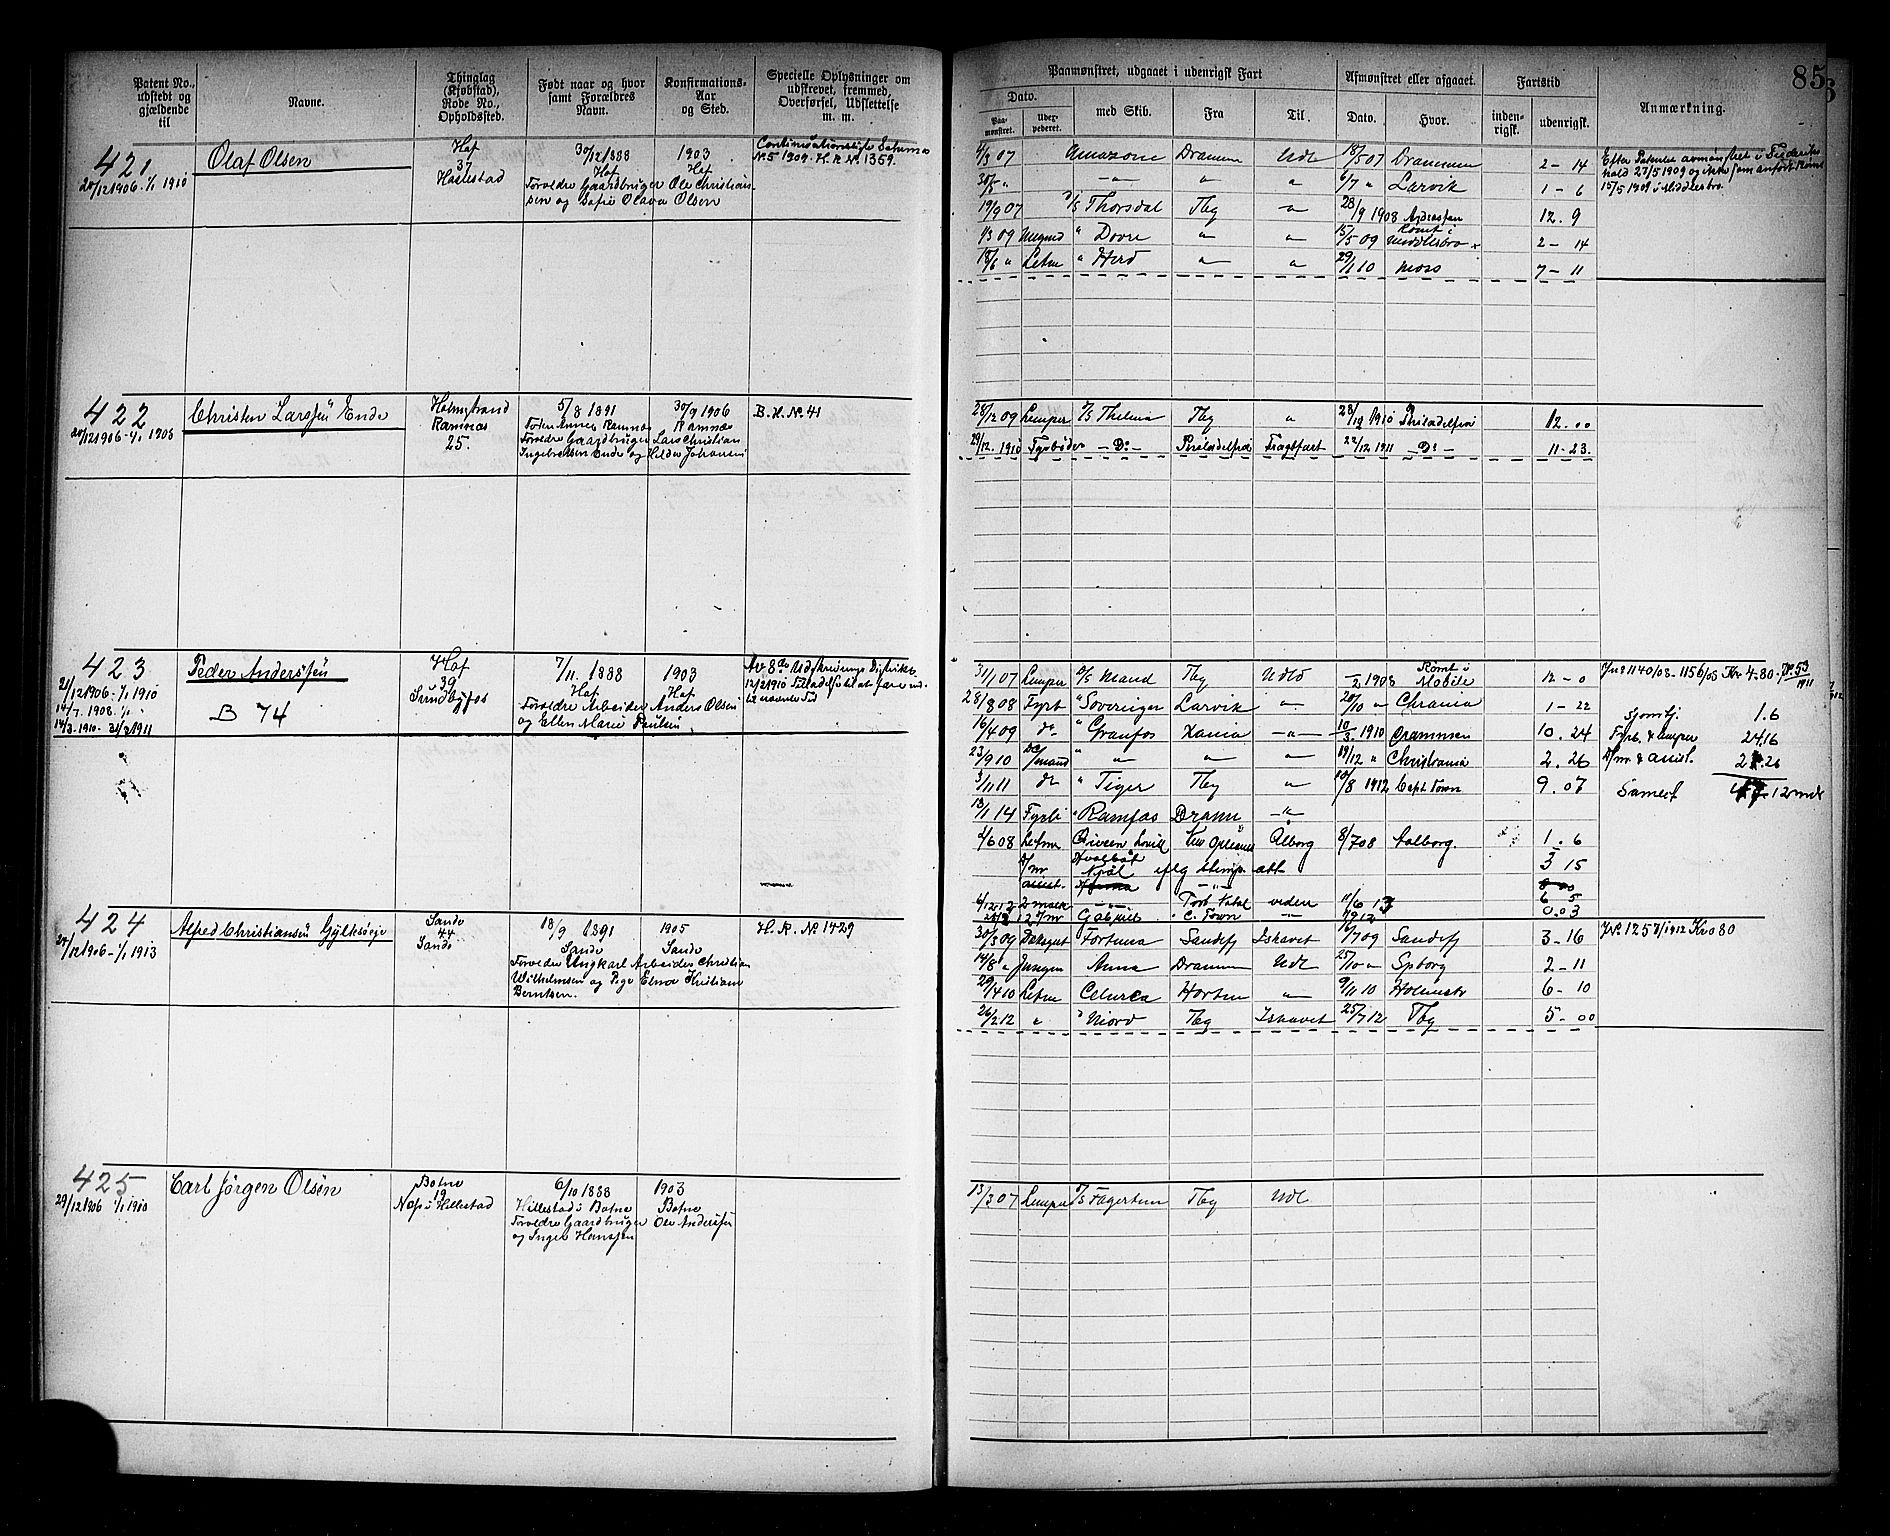 85
Patent No., udstedt og gjældende til
Navne.
Thinglag (Kjøbstad), Rode No., Opholdssted.
Født naar og hvor samt Forældres Navn.
Konfirmations-Aar og Sted.
Specielle Oplysninger om udskrevet, fremmed, Overførsel, Udslettelse m. m.
Paamønstret, udgaaet i udenrigsk Fart
Afmønstret eller afgaaet.
Fartstid
Anmærkning.
Dato.
med Skib.
Fra
Til
Dato.
Hvor.
inden-rigsk.
udenrigsk.
Paa-mønstret.
421
20/12 1906 - 1/1 1910
Olaf Olsen
Hof
37
Hillestad
30/12 1888
Hof
Forældre Gaardbruger Ole Christian-
sen og Sofie Olava Olsen
1903
Hof
No 5 1909. H. R. No 1359.
4/3 07 Amazone Drammen Udl 18/5 07 Drammen 2 - 14
30/5 " - " - " " 6/7 " Larvik 1 - 6
19/9 07 D/S Thorsdal Tbg " 28/9 1908 12. 9
1/3 09 " Dovre " " 15/5 09 Rømt i Middlesbro 2 - 14
18/6 " Letm " Herd " " 29/1 10 Moss 7 - 11
15/5 1909 i Middlesbro
422
20/12 1906 - 1/1 1908
Christen Larssen Ende
Holmestrand
Ramnæs
25.
5/8 1891
Forældre Gaardbruger Lars Christian
Ingebretsen Ende og Hilda Johansen
30/9 1906
Ramnæs
B. H. No. 41
28/12 09 Lemper D/S Thelma Tbg " 28/12 1910 Philadelfia 12. 00
29/12. 1910 Fyrbøder - Do - Philadelfia Fragtfart 22/12 1911 - Do - 11 - 23.
423
21/12 1906. - 1/1 1910
14/7. 1908. 1/1 "
14/3. 1910 - 31/3 1911
Peder Anderssen
B 74
Hof
39
Sundbyfos
7/11. 1888
Hof
Forældre Arbeider Anders Olsen
og Ellen Marie Paulsen
1903
Hof
Av 8de Udskrivnings Distrikt
12/2 1910 Tilladelse til at fare ud.
til nævnte Tid
3/1 07 Lemper D/S Maud Tbg Udld 1/2 1908 Rømt i Mobile 12 - 0
28/8 08 Fyrb " Soveringer Larvik " 20/10 " Chrania 1 - 22
16/4 09 do " Granfos Xania - " - 10/3 1910 Drammen 10. 24
23/9 10 D/mand " " " " 19/12 " Christiania 2. 26
3/1 11 do " Tiger Tbg " 10/8 1912 Cape Town 9. 07
13/1 14 Fyrb " Ramfos Dramm - " -
4/6 08 Letm Ålborg 8/7 08 Aalborg. 1. 6
Hvalbåt Njål 3 15
2 mask Port Natal viden 10/6 13 6 5
Gabriel C. Town 0.03
Jno 1140/08 - 1156/08 Kr 4.80
1.6
Fyrb. & Lemper 24.16
D/mr & assist. 26
Samlet 12 mdr
424
27/12 1906 - 1/1 1913
Alfred Christiansen Gylksøeje
Sande
44
Sande
18/9 1891
Sande
Forældre Ungkarl Arbeider Christian
Wilhelmsen og Pige Elna Kristiane
Berntsen.
1905
Sande
H. R. No 1429
30/3 09 Dæksgut Fortuna Sandefj Ishavet 16/7 09 Sandefj 3 - 16
14/8 " Jungm Anna Drammen Udl 25/10 " Spborg 2 - 11
29/4 10 Letm Horten " 9/11 10 Holmestr 6 - 10
26/2 12 " " Njord Tbg Ishavet 25/7 12 Tbg 5 - 00
JNo 1257/1912 Kr 0 80
425
29/12 1906 1/1 1910
Carl Jørgen Olsen
Botne
19
Næs i Hillestad
6/10 1888
Hillestad i Botne
Forældre Gaardbruger Ole Anderssen
og Inger Hanssen
1903
Botne
13/3 07 Lemper D/S Fagertun Tbg Udl